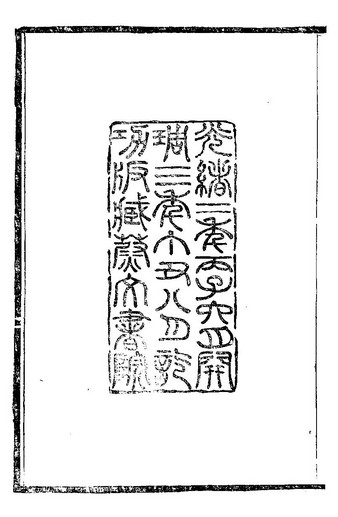 光緒二年丙子六月開
琱三年丁丑八月訖
功版藏蔚文書院